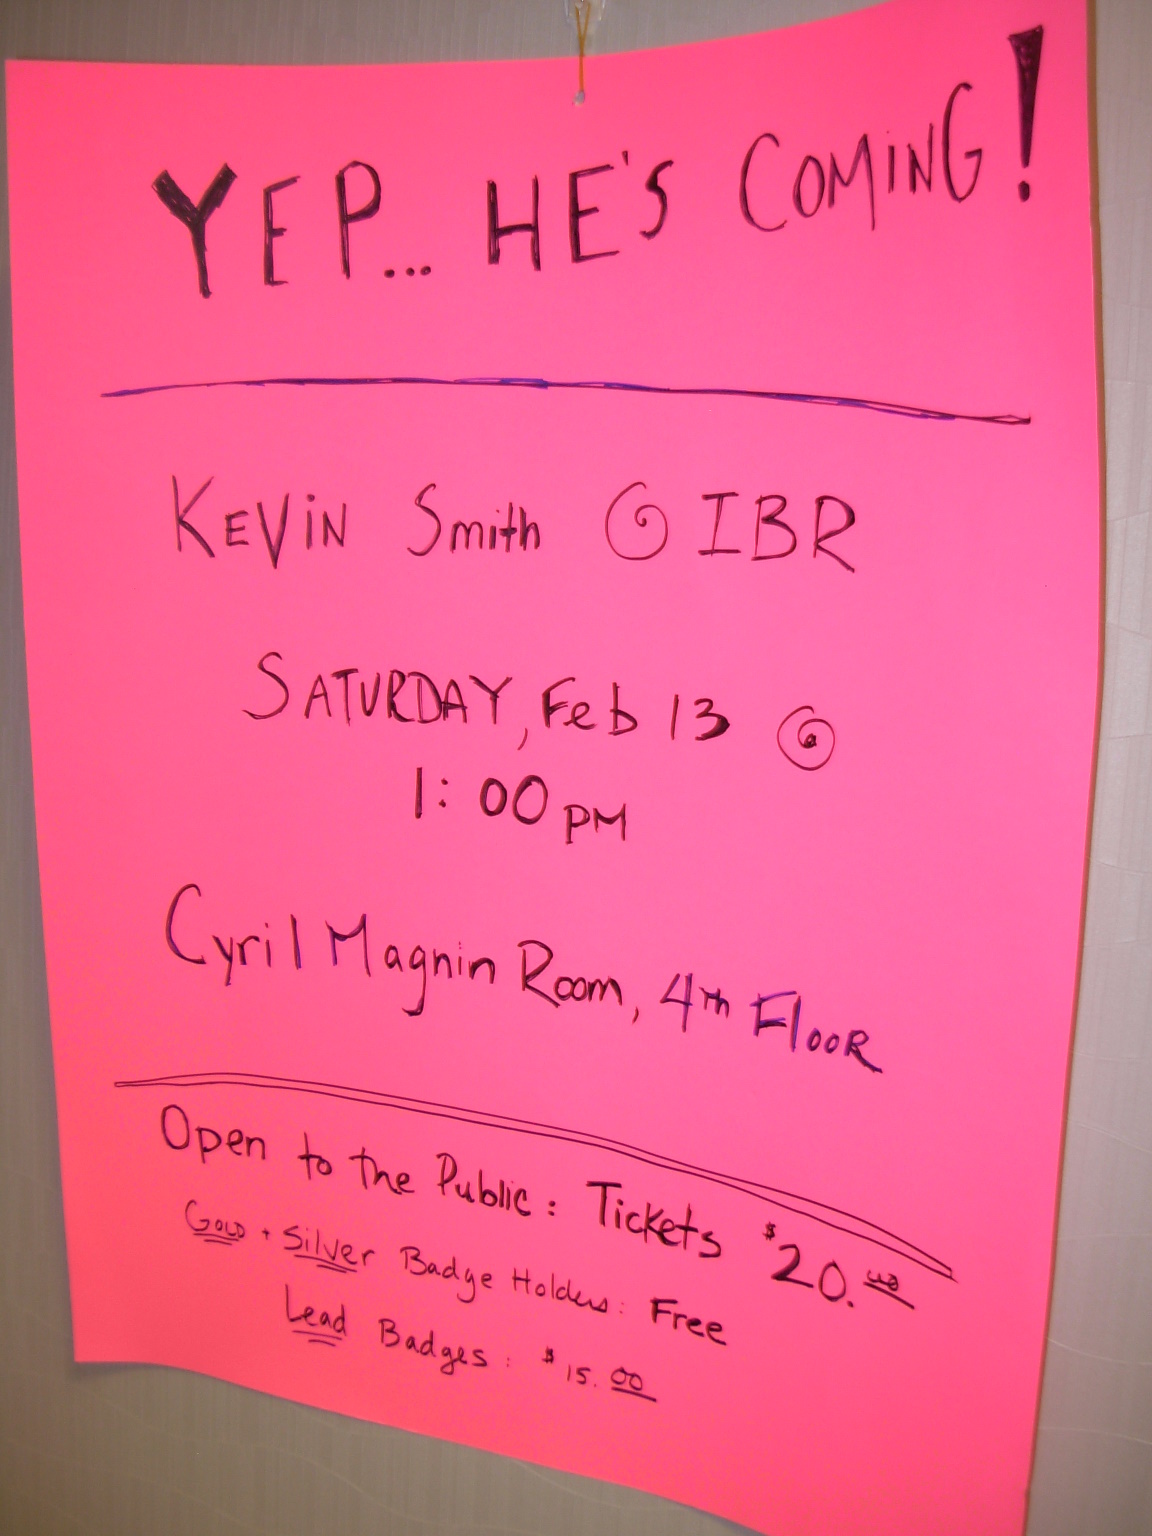 YEP... HE'S COMING!
KEViN Smith @ IBR
SATURDAY, Feb 13 @
1:00 PM
Cyril Magnin Room, 4th FlooR
Open to the Public: Tickets $20.00
Gold + Silver Badge Holders: Free
Lead Badges: $15.00